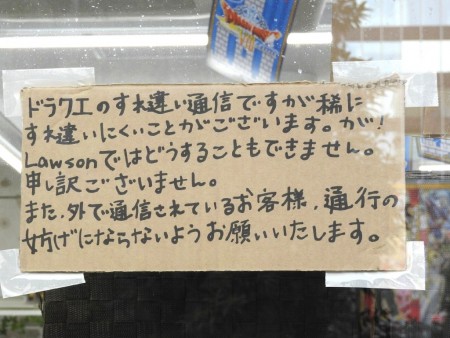 ドラクエのすれ違い通信ですが稀に
すれ違いにくいことがございます。が!
Lawsonではどうすることもできません。
申し訳ございません。
また、外で通信されているお客様、通行の
妨げにならないようお願いいたします。